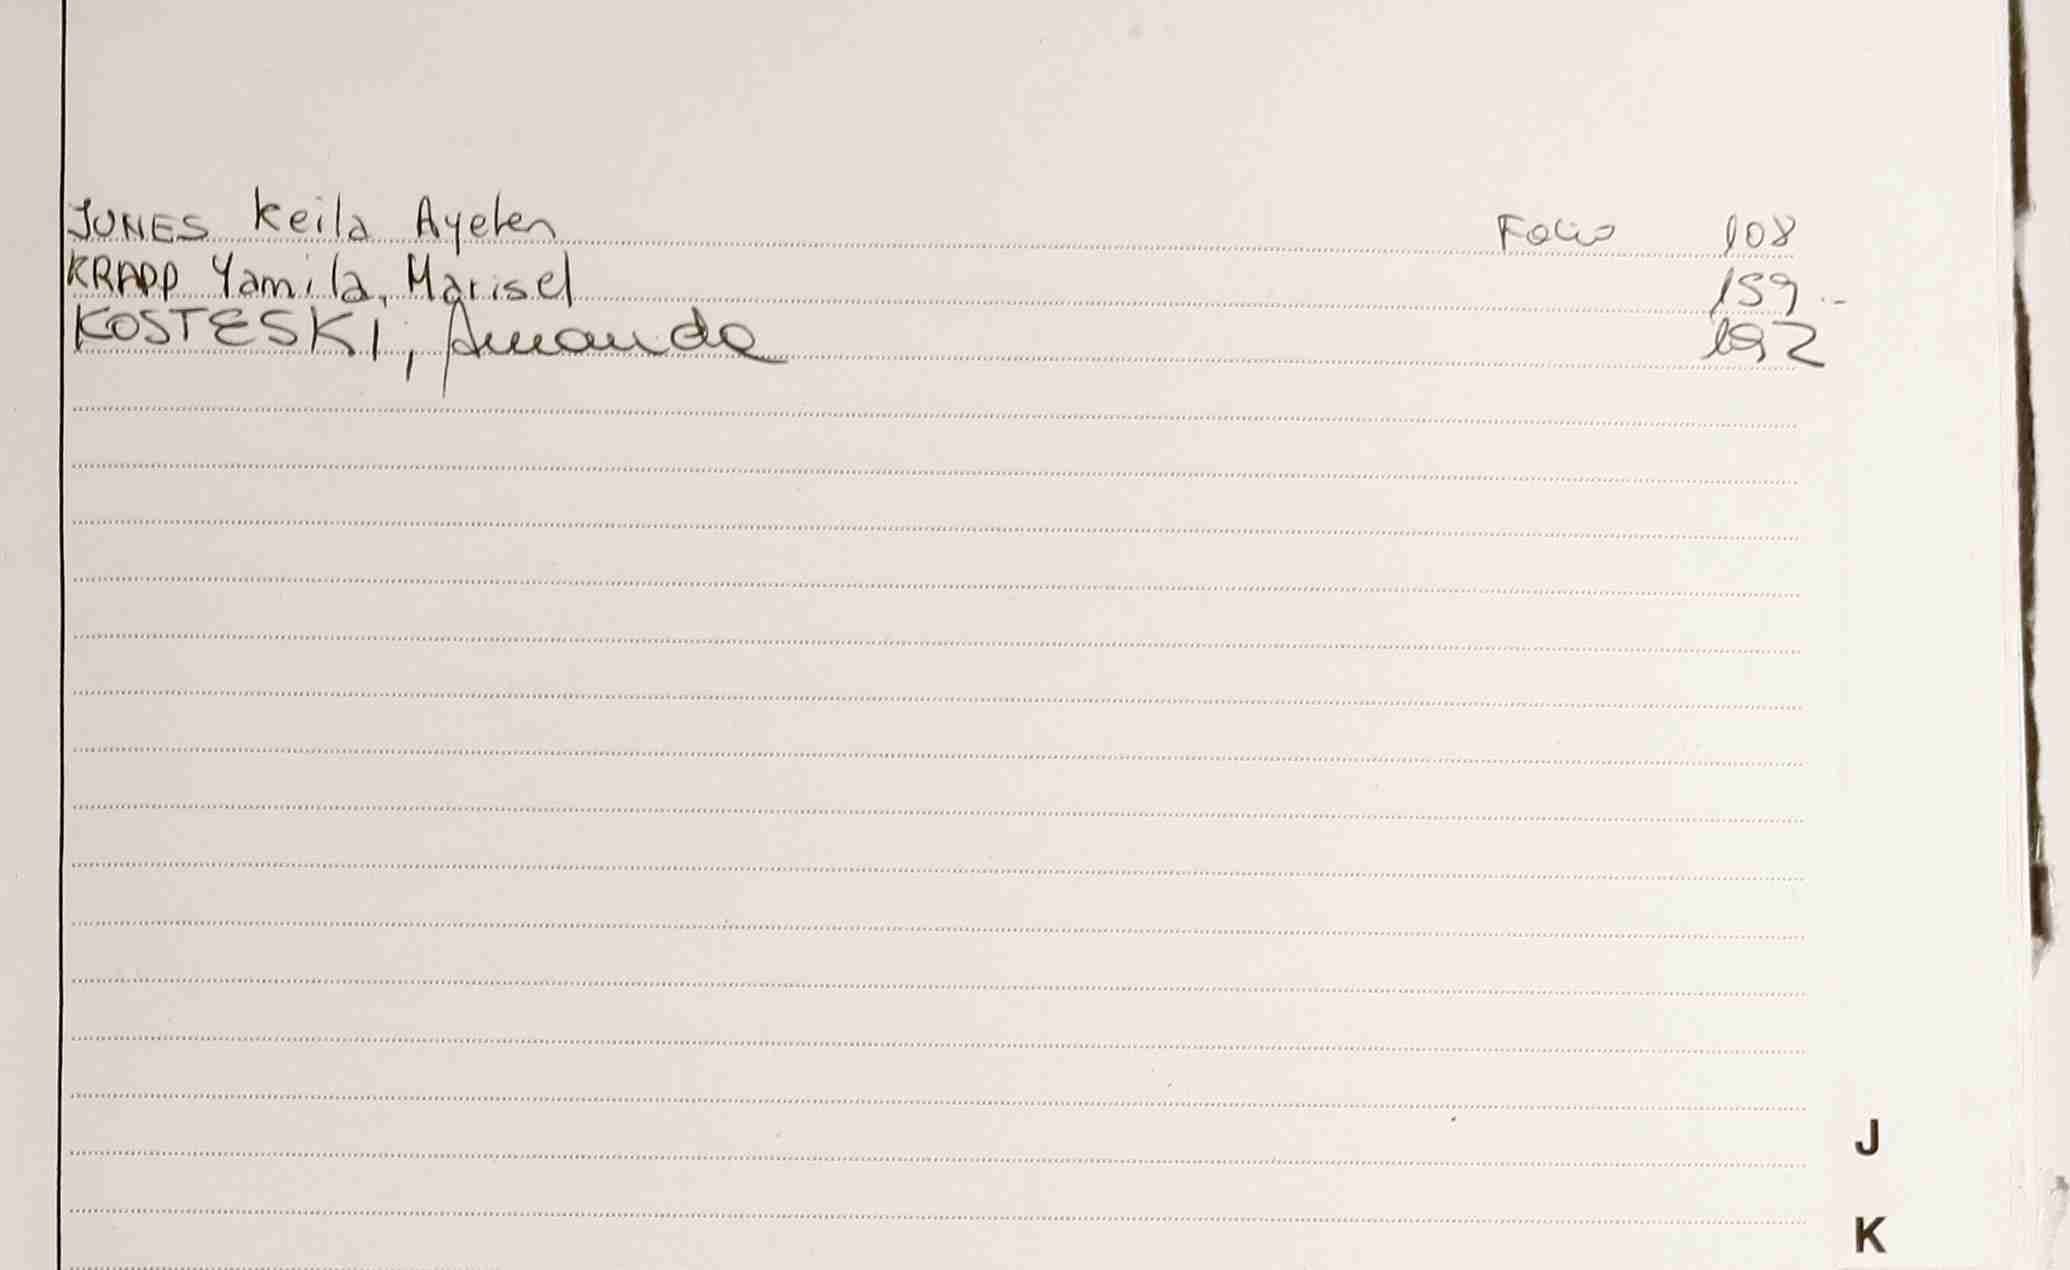 JUNES Keila Ayelen Folio 108
KRAPP Yamila, Marisel 159.-
KOSTESKI, Amanda 192
J
K